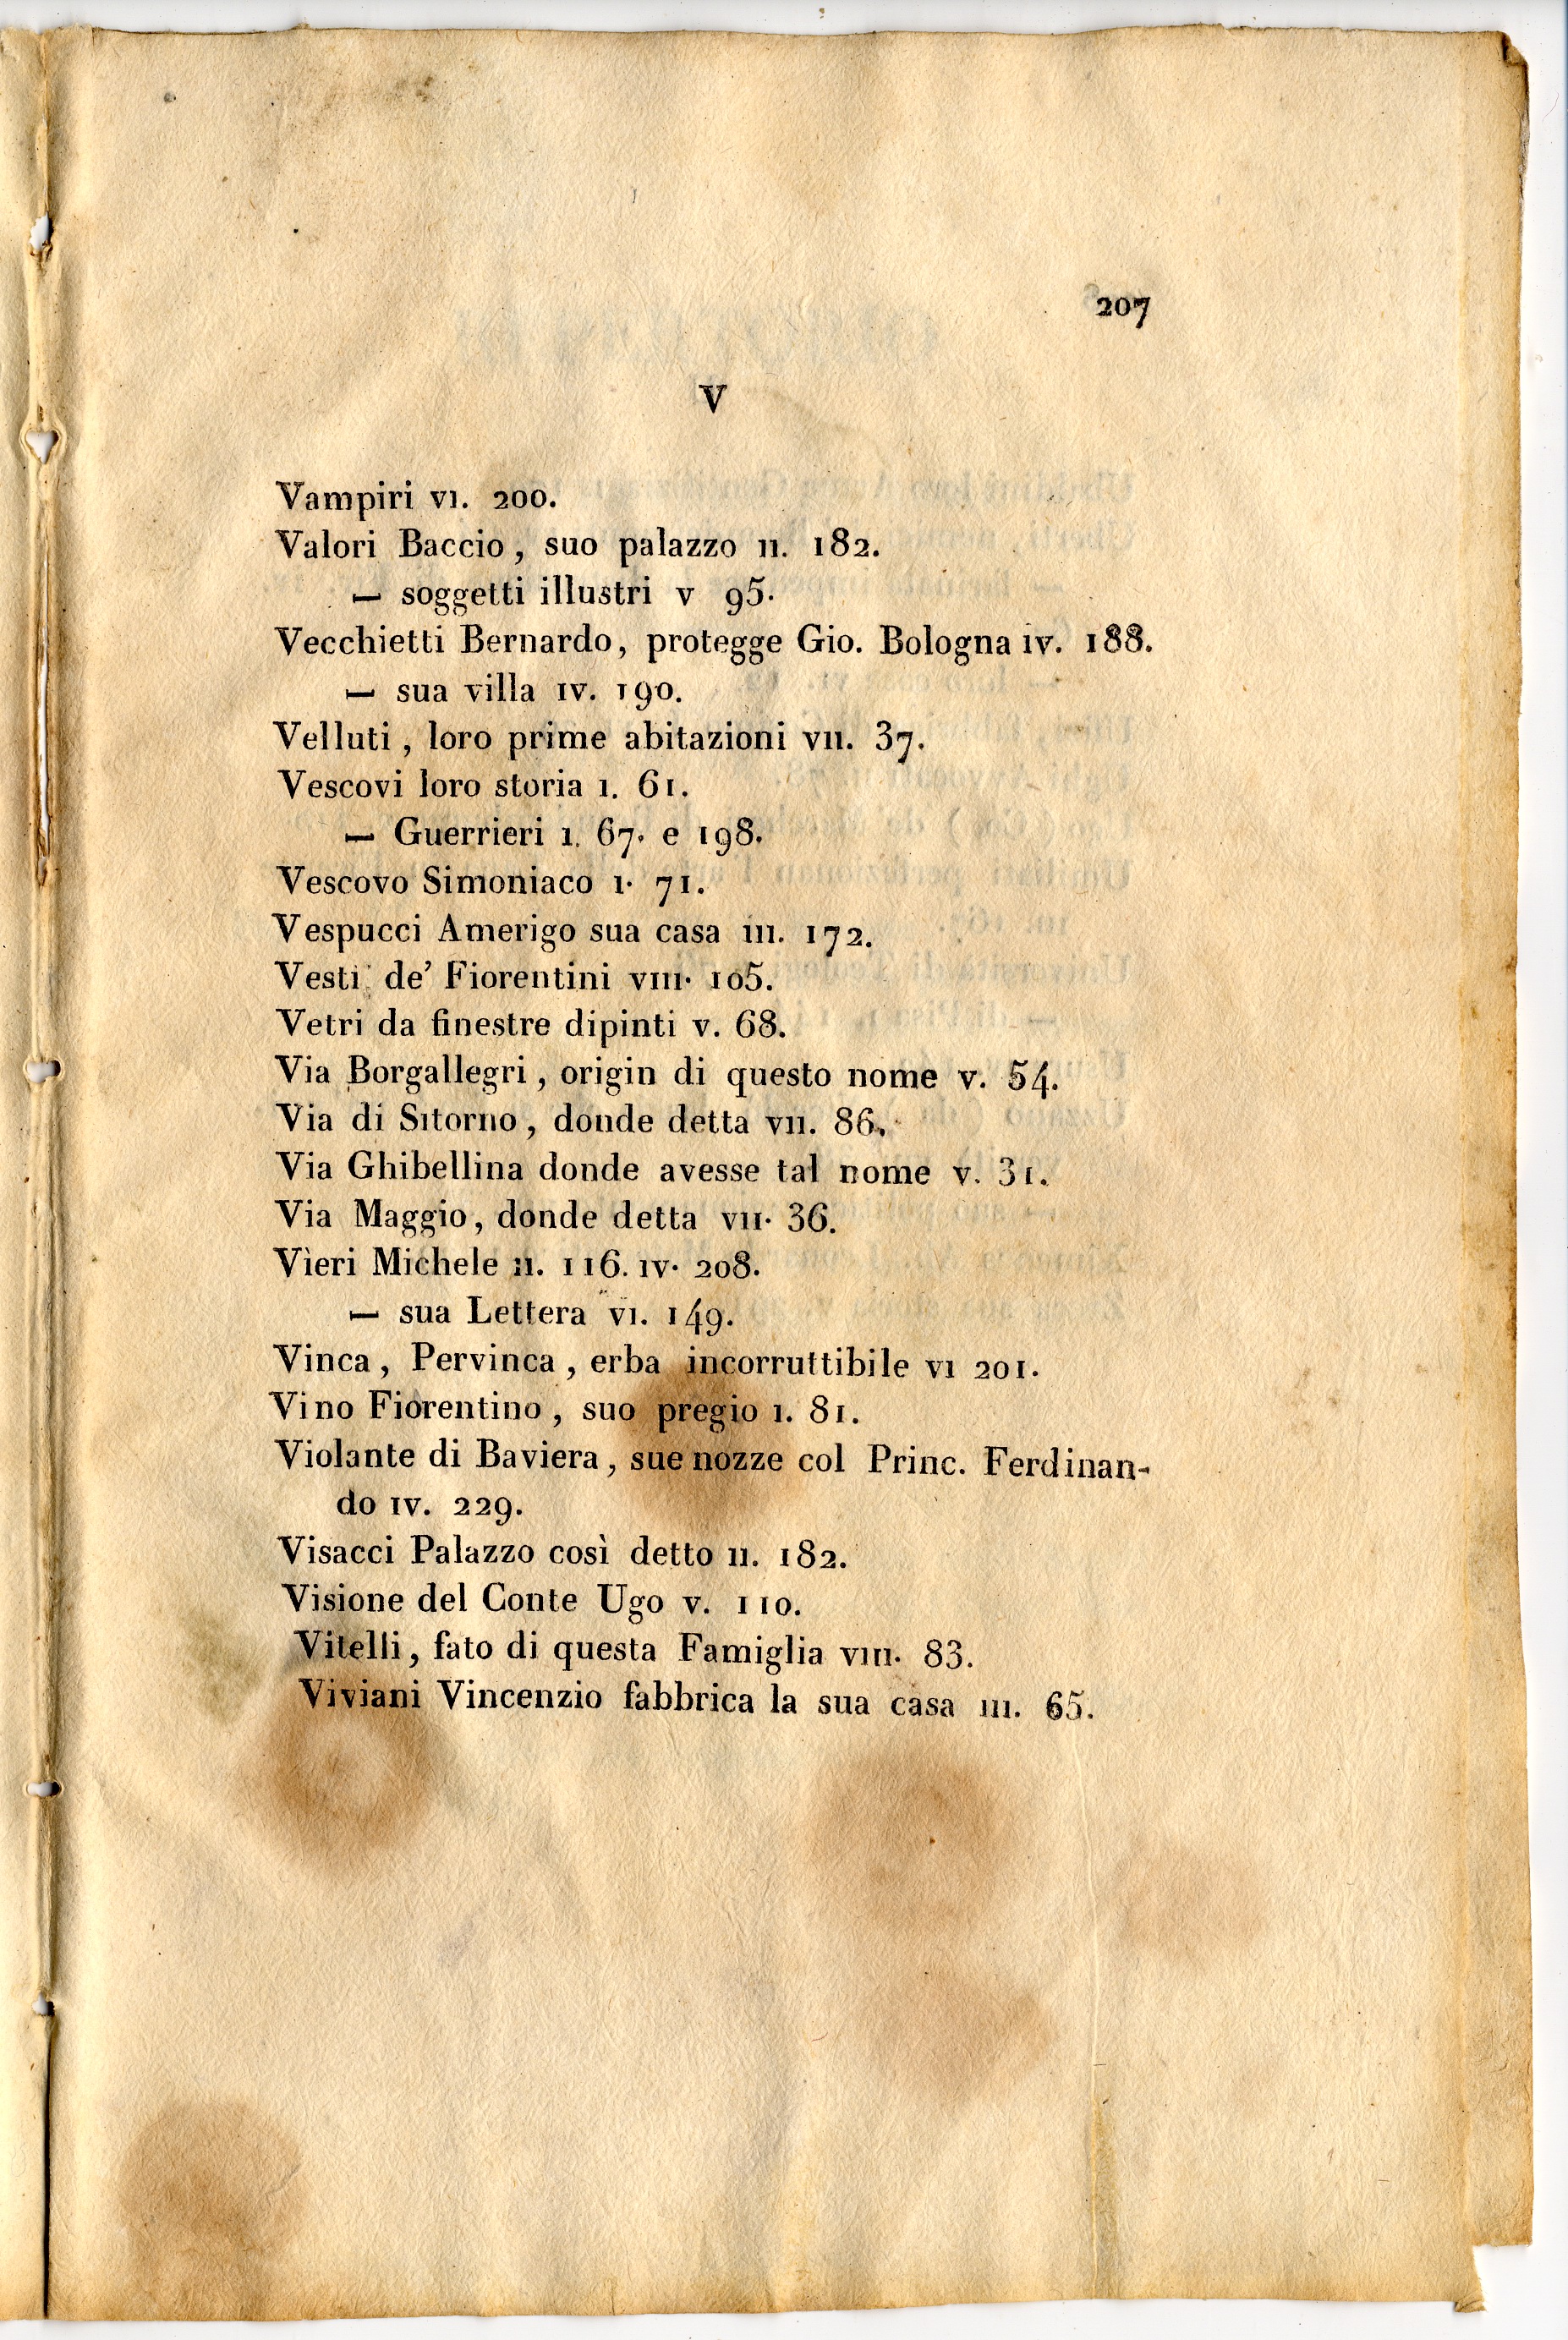 207
V
Vampiri VI. 200.
Valori Baccio, suo palazzo II. 182.
— soggetti illustri V 95.
Vecchietti Bernardo, protegge Gio. Bologna IV. 188.
— sua villa IV. 190.
Velluti, loro prime abitazioni VII. 37.
Vescovi loro storia I. 61.
— Guerrieri I. 67. e 198.
Vescovo Simoniaco I. 71.
Vespucci Amerigo sua casa III. 172.
Vesti de' Fiorentini VIII. 105.
Vetri da finestre dipinti V. 68.
Via Borgallegri, origin di questo nome V. 54.
Via di Sitorno, donde detta VII. 86.
Via Ghibellina donde avesse tal nome V. 31.
Via Maggio, donde detta VII. 36.
Vieri Michele II. 116. IV. 208.
— sua Lettera VI. 149.
Vinca, Pervinca, erba incorruttibile VI 201.
Vino Fiorentino, suo pregio I. 81.
Violante di Baviera, sue nozze col Princ. Ferdinan-
do IV. 229.
Visacci Palazzo così detto II. 182.
Visione del Conte Ugo V. 110.
Vitelli, fato di questa Famiglia VIII. 83.
Viviani Vincenzio fabbrica la sua casa III. 65.